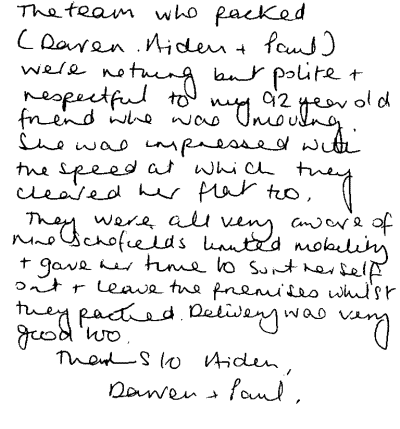 The team who packed
(Daren. Aiden + Paul)
were nothing but polite +
respectful to my 92 year old
friend who was moving.
She was impressed with
the speed at which they
cleared her flat too.
They were all very aware of
Mrs Schofields limited mobility
+ gave her time to sort herself
out + leave the premises whilst
they packed. Delivery was very
good too.
Thanks to Aiden,
Darren + Paul.